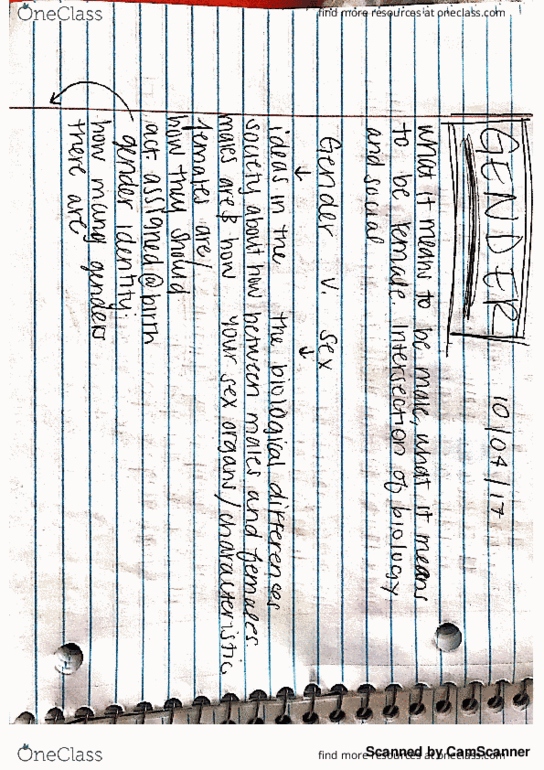 OneClass
find more resources at oneclass.com
GENDER
10/04/17
what it means to be male, what it means
to be female. Intersection of biology
and social
Gender v. sex
↓ ↓
ideas in the
society about how
males are & how
females are/
how they should
act. assigned @ birth
the biological differences
between males and females.
your sex organs/characteristic
gender identity:
how many genders
there are
OneClass
find more resources at oneclass.com
Scanned by CamScanner